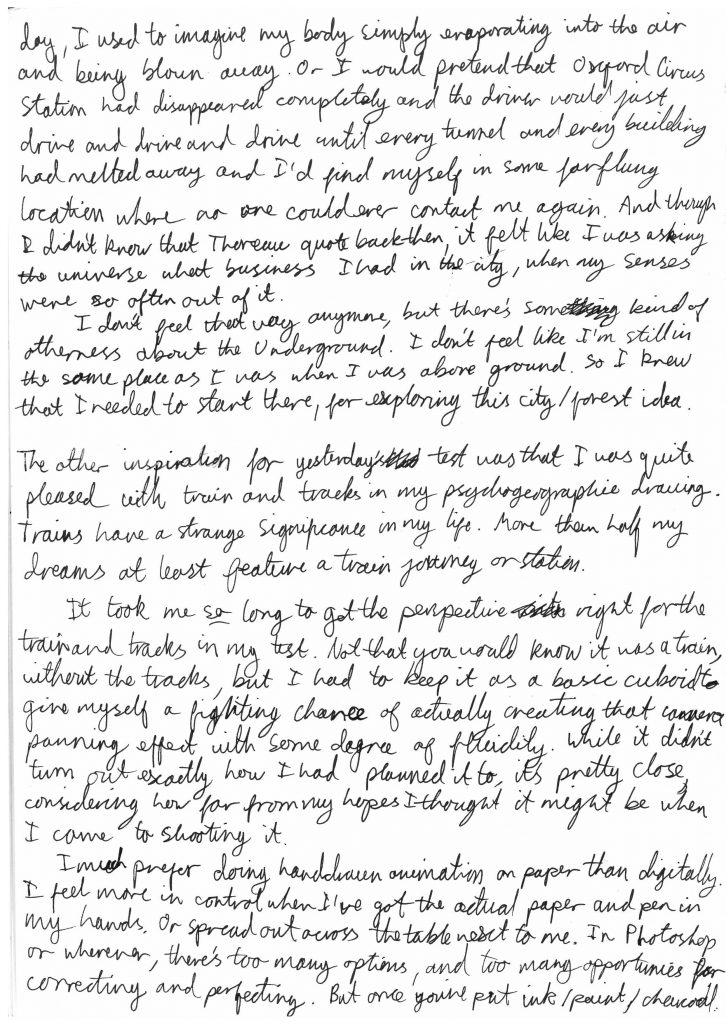 day, I used to imagine my body simply evaporating into the air
and being blown away. Or I would pretend that Oxford Circus
Station had disappeared completely and the driver would just
drive and drive and drive until every tunnel and every building
had melted away and I'd find myself in some far flung
location where no one could ever contact me again. And though
I didn't know that Thoreau quote back then, it felt like I was asking
the universe what business I had in the city, when my senses
were so often out of it.
I don't feel that way anymore, but there's some kind of
otherness about the Underground. I don't feel like I'm still in
the same place as I was when I was above ground. So I knew
that I needed to start there, for exploring this city/forest idea.
The other inspiration for yesterday's test was that I was quite
pleased with train and tracks in my psychogeographic drawing.
Trains have a strange significance in my life. More than half my
dreams at least feature a train journey or station.
It took me so long to get the perspective right for the
train and tracks in my test. Not that you would know it was a train,
without the tracks, but I had to keep it as a basic cuboid to
give myself a fighting chance of actually creating that camera
panning effect with some degree of fluidity. While it didn't
turn out exactly how I had planned it to, it's pretty close,
considering how far from my hopes I thought it might be when
I came to shooting it.
I much prefer doing handdrawn animation on paper than digitally.
I feel more in control when I've got the actual paper and pen in
my hands. Or spread out across the table next to me. In Photoshop
or wherever, there's too many options, and too many opportunies for
correcting and perfecting. But once you've put ink/paint/charcoal